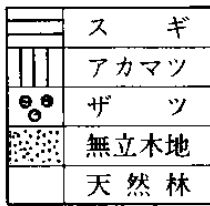 スギ
アカマツ
ザツ
無立木地
天然林